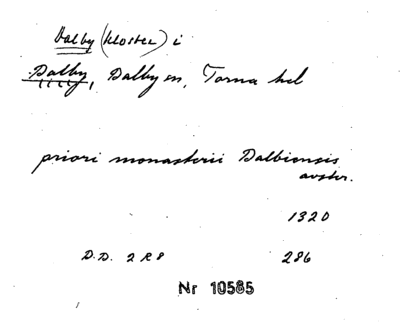 Dalby (kloster) i
Dalby, Dalby sn, Torna hd
priori monasterii Dalbiensis
avskr.
1320
D.D. 2 R 8 286
Nr 10585